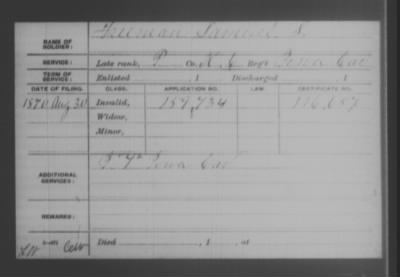 NAME OF SOLDIER: Freeman Samuel S.
SERVICE: Late rank, P Co. K, 6 Reg't Iowa Cav
TERM OF SERVICE: Enlisted , 1 Discharged , 1
DATE OF FILING. CLASS. APPLICATION NO. LAW. CERTIFICATE NO.
1870 Aug 30 Invalid, 157,734 116,
Widow,
Minor,
ADDITIONAL SERVICES: Iowa Cav
REMARKS:
Died , 1 , at